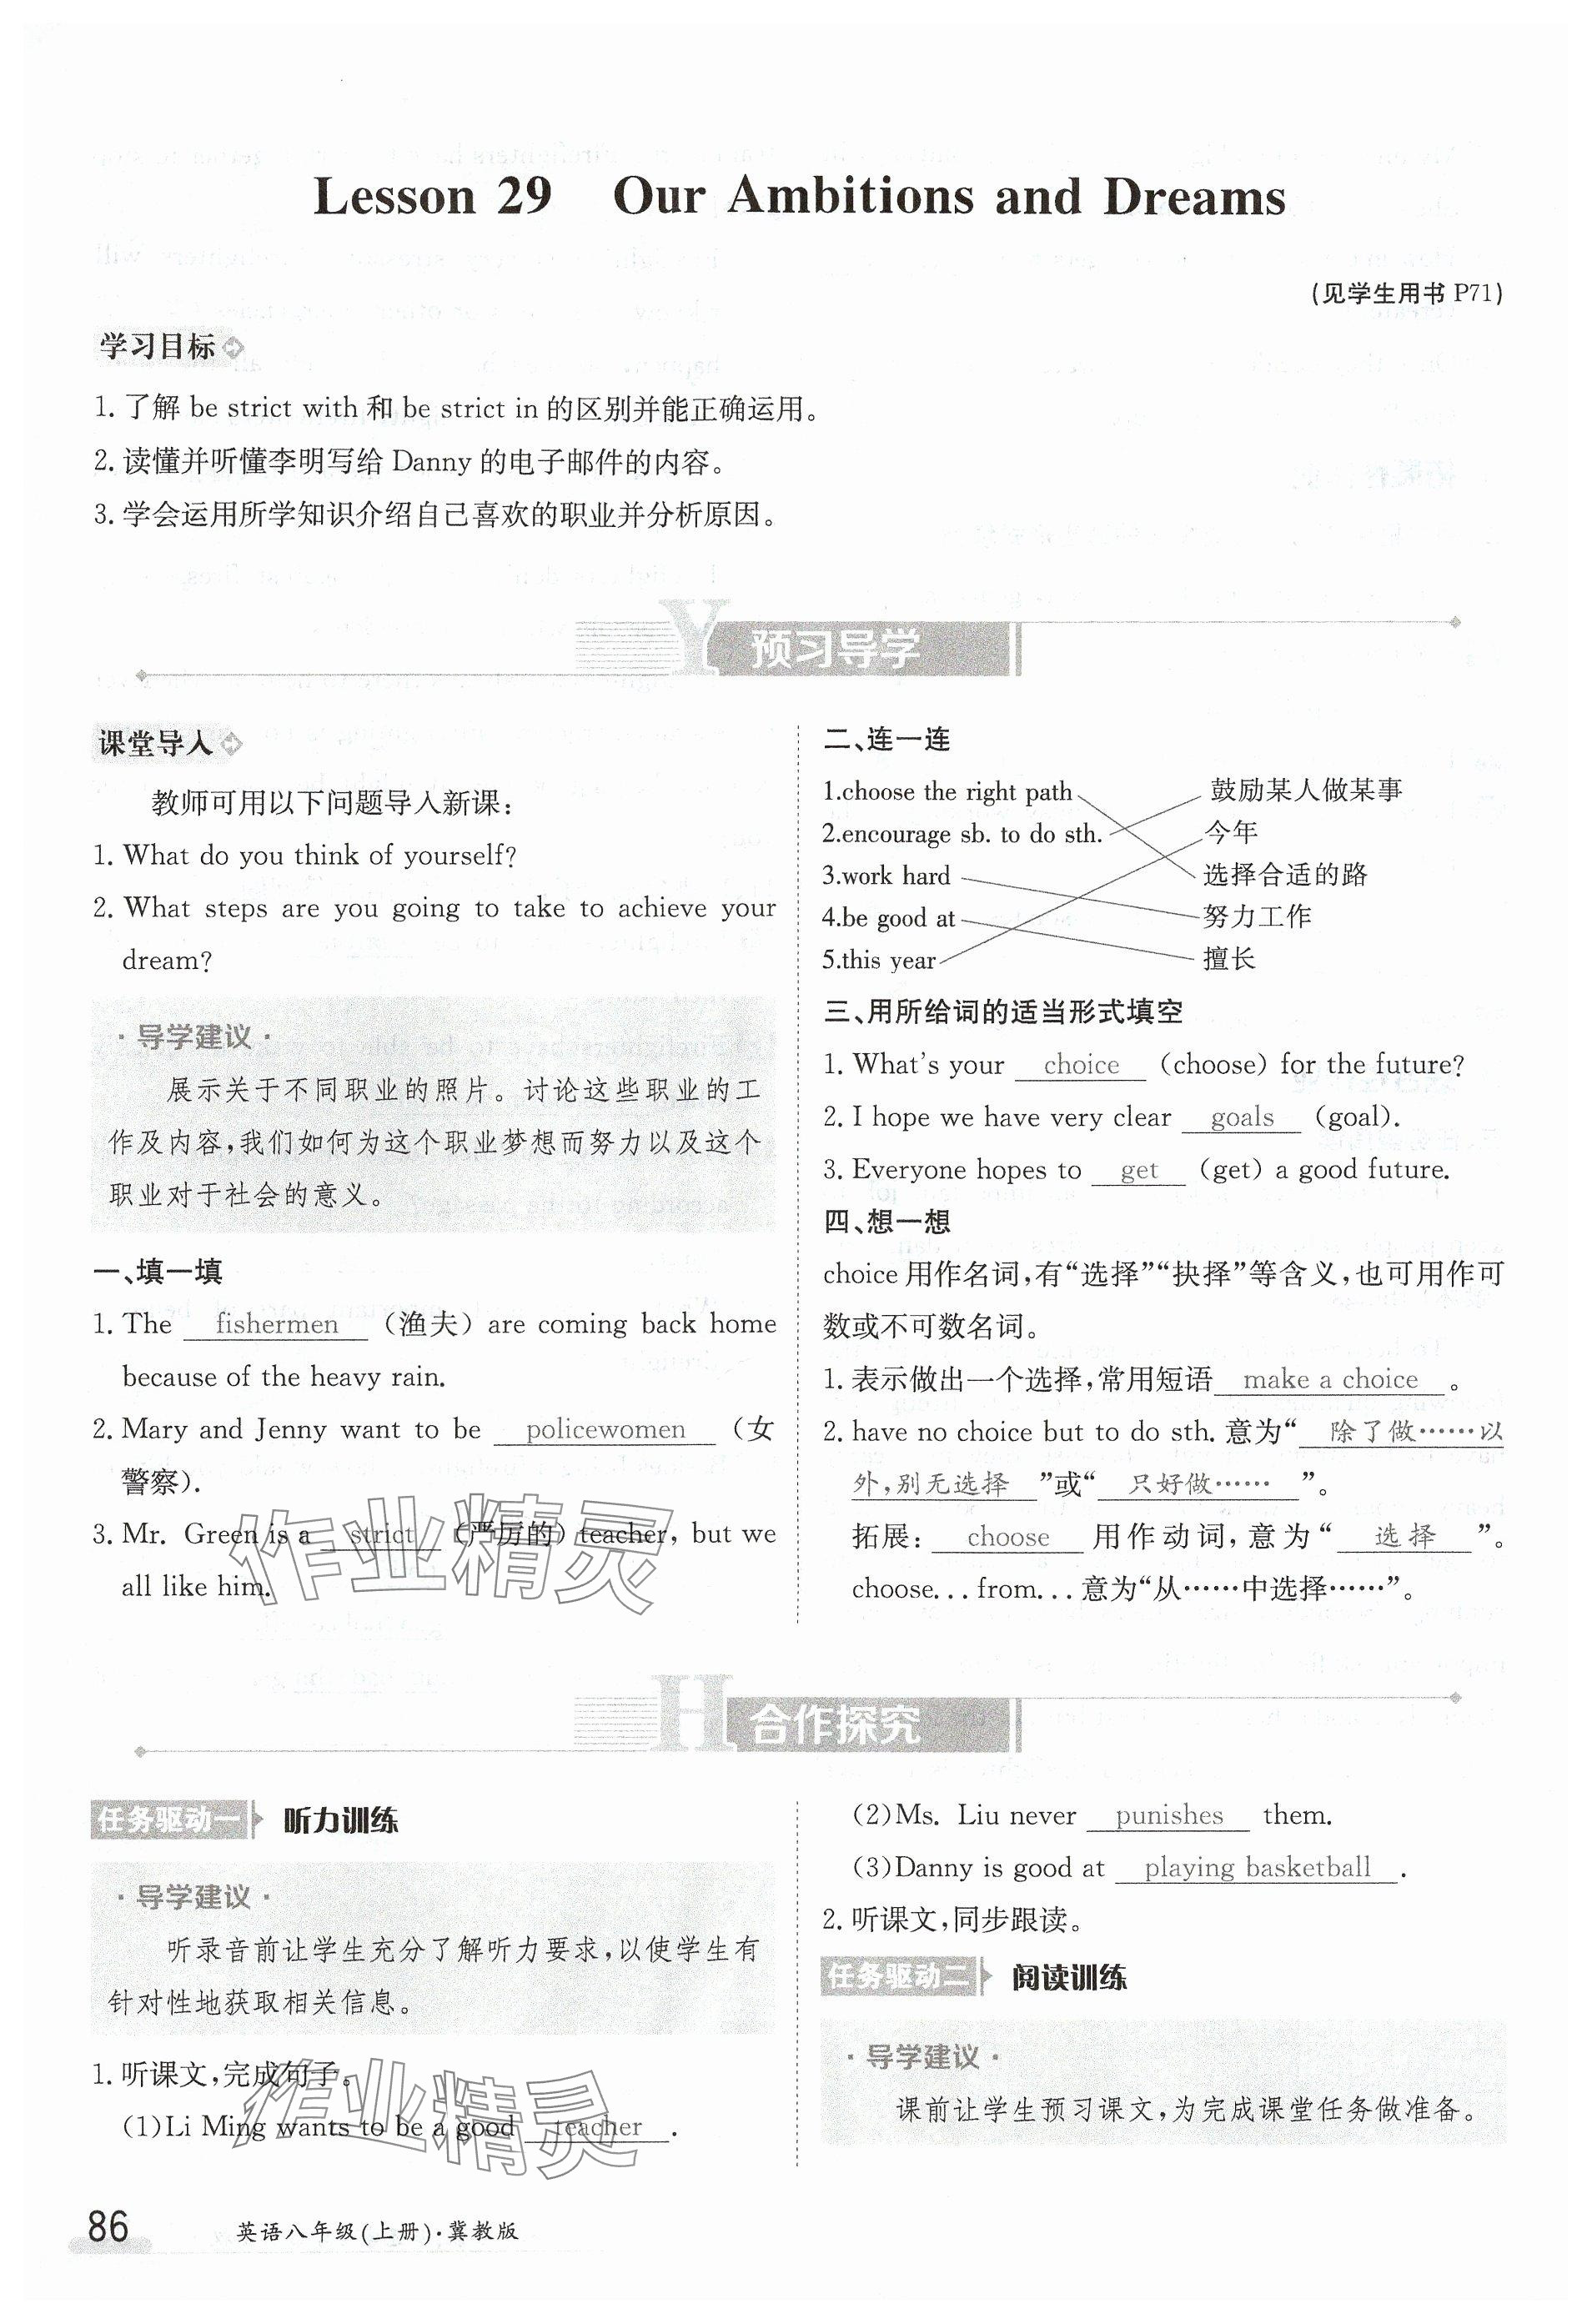 Lesson 29 Our Ambitions and Dreams
(见学生用书 P71)
学习目标
1. 了解 be strict with 和 be strict in 的区别并能正确运用。
2. 读懂并听懂李明写给 Danny 的电子邮件的内容。
3. 学会运用所学知识介绍自己喜欢的职业并分析原因。
Y 预习导学
课堂导入
教师可用以下问题导入新课:
1. What do you think of yourself?
2. What steps are you going to take to achieve your
dream?
·导学建议·
展示关于不同职业的照片。讨论这些职业的工
作及内容,我们如何为这个职业梦想而努力以及这个
职业对于社会的意义。
一、填一填
1. The fishermen (渔夫) are coming back home
because of the heavy rain.
2. Mary and Jenny want to be policewomen (女
警察).
3. Mr. Green is a strict (严厉的) teacher, but we
all like him.
二、连一连
1.choose the right path 鼓励某人做某事
2.encourage sb. to do sth. 今年
3.work hard 选择合适的路
4.be good at 努力工作
5.this year 擅长
三、用所给词的适当形式填空
1. What's your choice (choose) for the future?
2. I hope we have very clear goals (goal).
3. Everyone hopes to get (get) a good future.
四、想一想
choice 用作名词,有“选择”“抉择”等含义,也可用作可
数或不可数名词。
1. 表示做出一个选择,常用短语 make a choice 。
2. have no choice but to do sth. 意为“ 除了做……以
外,别无选择 ”或“ 只好做…… ”。
拓展: choose 用作动词,意为“ 选择 ”。
choose...from...意为“从……中选择……”。
H 合作探究
任务驱动一 听力训练
·导学建议·
听录音前让学生充分了解听力要求,以使学生有
针对性地获取相关信息。
1. 听课文,完成句子。
(1)Li Ming wants to be a good teacher .
(2)Ms. Liu never punishes them.
(3)Danny is good at playing basketball .
2. 听课文,同步跟读。
任务驱动二 阅读训练
·导学建议·
课前让学生预习课文,为完成课堂任务做准备。
作业精灵
作业精灵
86 英语八年级(上册)·冀教版